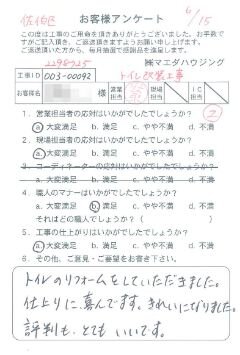 佐伯区
お客様アンケート
6/15
この度は工事のご用命を頂きありがとうございました。お手数で
すがご記入頂き、ご返送頂きますようお願い申し上げます。
ご返送頂いた方から、毎月抽選で感謝品を進呈します。
2298925
㈱マエダハウジング
工事ID 003-00092 トイレ改装工事
お客様名 様 営業担当 現場担当 IC担当
1. 営業担当者の応対はいかがでしたでしょうか? ②
a. 大変満足 b. 満足 c. やや不満 d. 不満
2. 現場担当者の応対はいかがでしたでしょうか?
a. 大変満足 b. 満足 c. やや不満 d. 不満
3. コーディネーターの応対はいかがでしたでしょうか?
a. 大変満足 b. 満足 c. やや不満 d. 不満
4. 職人のマナーはいかがでしたでしょうか?
a. 大変満足 b. 満足 c. やや不満 d. 不満
それはどの職人でしょうか? ( )
5. 工事の仕上がりはいかがでしたでしょうか?
a. 大変満足 b. 満足 c. やや不満 d. 不満
6. その他、ご意見・ご要望をお書き下さい。
トイレのリフォームをしていただきました。
仕上りに、喜んでます。きれいになりました。
評判も、とてもいいです。